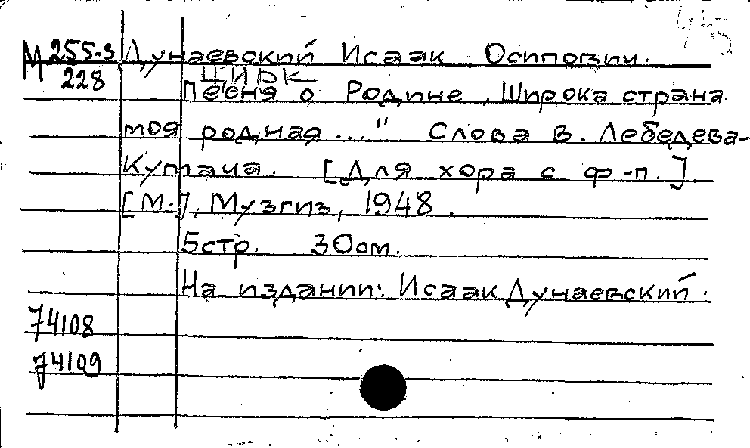 М 255-3
228
Дунаевский Исаак Осипович.
ЦИРК
Песня о Родине „Широка страна
моя родная..." Слова В. Лебедева-
Кумача. [Для хора с ф-п.]
[М.], Музгиз, 1948.
5стр. 30см.
На издании: Исаак Дунаевский.
74108
74109